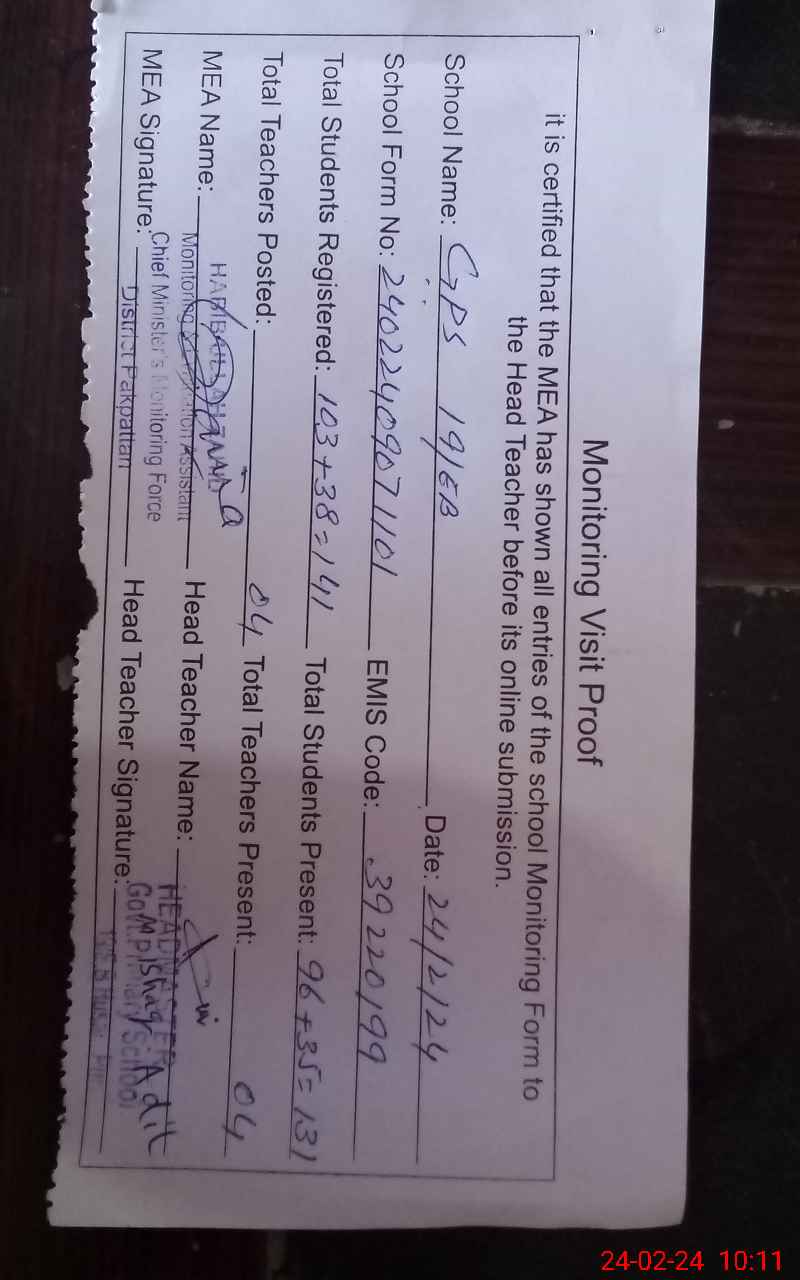 Monitoring Visit Proof
it is certified that the MEA has shown all entries of the school Monitoring Form to
the Head Teacher before its online submission.
School Name: GPS 19/EB Date: 24/2/24
School Form No: 24022409071101 EMIS Code: 39220199
Total Students Registered: 103+38=141 Total Students Present: 96+35=131
Total Teachers Posted: 04 Total Teachers Present: 04
MEA Name: Head Teacher Name:
Monitoring Assistant HEADMASTER
Chief Minister's Monitoring Force
MEA Signature: Head Teacher Signature: Govt. Primary School
District Pakpattan
24-02-24 10:11